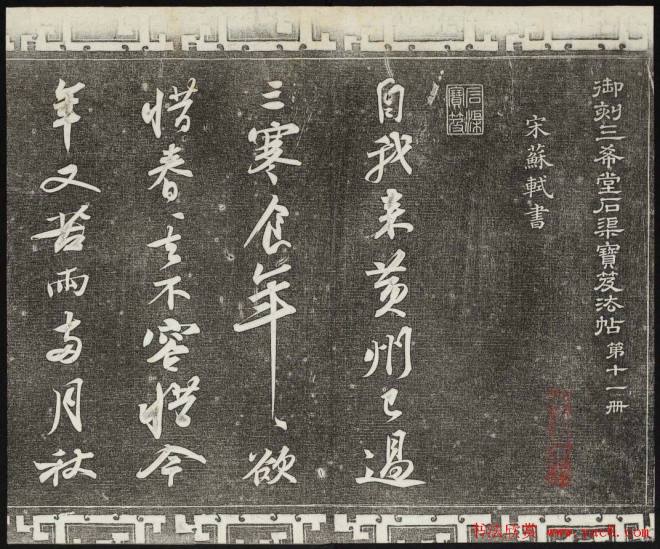 御刻三希堂石渠寶笈法帖 第十一冊
宋蘇軾書
石渠寶笈
自我来黄州已過
三寒食年〻欲
惜春〻去不容惜今
年又苦雨兩月秋
书法欣赏